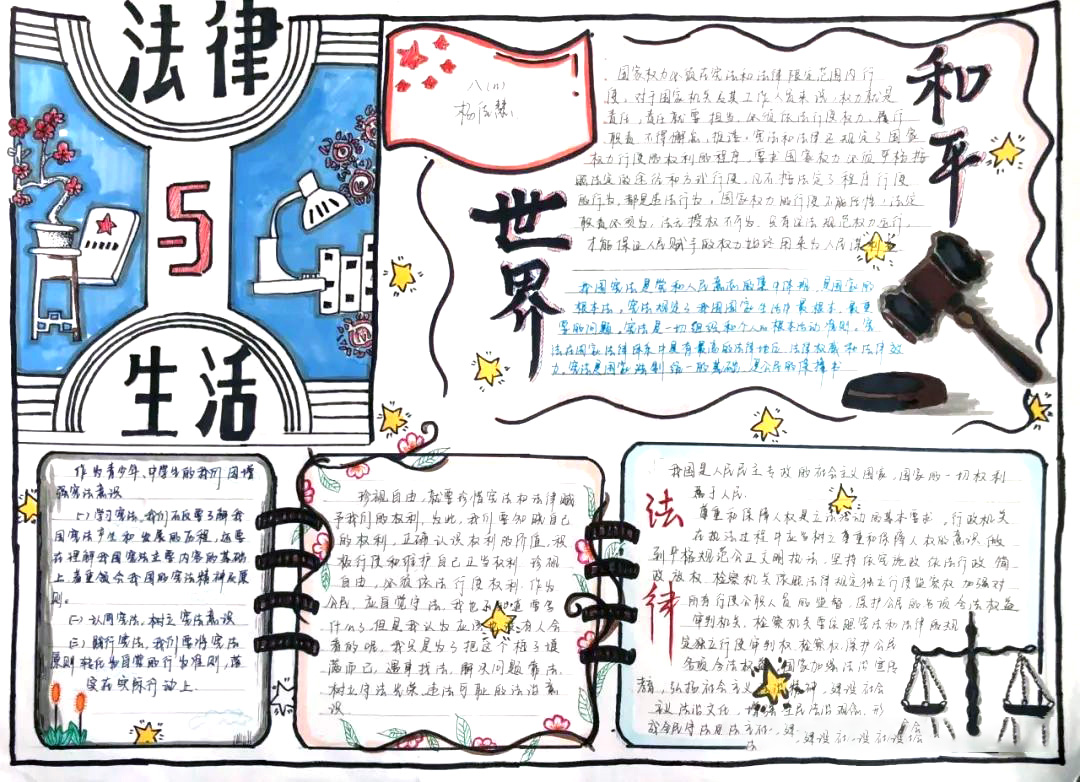 法律
与
生活
八(11)
和平
世界
国家权力必须在宪法和法律限定范围内行
使。对于国家机关及其工作人员来说，权力就是
责任，责任就要担当，必须依法行使权力、履行
职责，不得懈怠、推诿。宪法和法律还规定了国家
权力行使的权利的程序，要求国家权力必须严格按
照法定的途径和方式行使，凡不按法定了程序行使
的行为，都是违法行为，国家权力的行使不能任性，法定
职责必须为，法无授权不可为，只有依法规范权力运行
才能保证人民赋予的权力始终用来为人民
我国宪法是党和人民意志的集中体现，是国家的
根本法。宪法规定了我国国家生活中最根本、最重
要的问题。宪法是一切组织和个人的根本活动准则。宪
法在国家法律体系中具有最高的法律地位、法律权威和法律效
力。宪法是国家法制统一的基础，是公民的保障书
作为青少年、中学生的我们 因增
强宪法意识
(一)学习宪法。我们不仅要了解我
国宪法产生和发展的历程，还要
在理解我国宪法主要内容的基础
上着重领会我国的宪法精神及原
则。
(二)认同宪法，树立宪法意识
(三)践行宪法，我们要将宪法
原则转化为自觉的行为准则，落
实在实际行动上
珍视自由，就要珍惜宪法和法律赋
予我们的权利，为此，我们要知晓自己
的权利，正确认识权利的价值，积
极行使和维护自己正当权利 珍视
自由，必须依法行使权利，作为
公民，应自觉守法，我也不知道要写
什么了，但是我认为应该也没有人会
看的吧，我只是为了把这个格子填
满而已，遇事找法，解决问题靠法，
树立守法光荣、违法可耻的法治意
识。
法律
我国是人民民主专政的社会主义国家，国家的一切权利
属于人民.
尊重和保障人权是立法活动的基本要求。行政机关
在执法过程中应当树立尊重和保障人权的意识 做
到严格规范公正文明执法，坚持依宪施政 依法行政 简
政放权，检察机关依照法律规定独立行使监察权 加强对
所有行使公职人员的监督，保护公民的各项合法权益
审判机关、检察机关要依照宪法和法律的规
定独立行使审判权、检察权，保护公民
各项合法权 国家加强法治宣传
教育，弘扬社会主义法治精神，建设社会
主义法治文化，增强全民法治观念，形